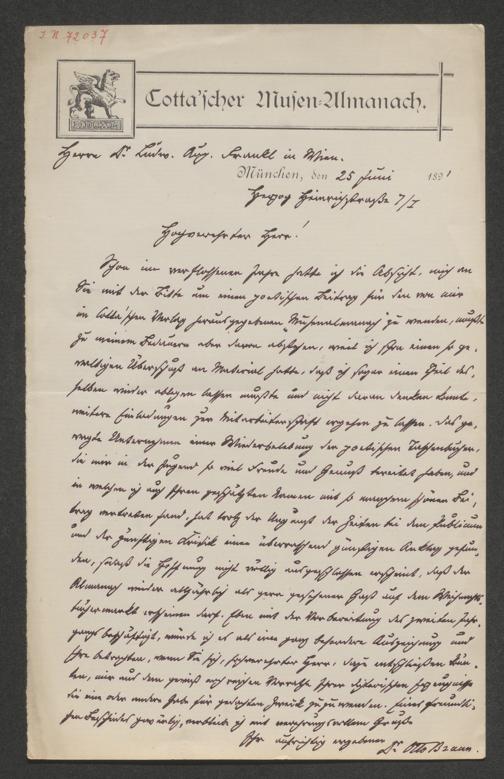 I. N. 72037
Cotta'scher Musen-Almanach.
Herrn Dr. Ludw. Aug. Frankl in Wien.
München, den 25 Juni 1891
Herzog Heinrichstraße 7/I
Hochverehrter Herr!
Schon im verflossenen Jahre hatte ich die Absicht, mich an
Sie mit der Bitte um einen poetischen Beitrag für den von mir
im Cotta'schen Verlag herausgegebenen "Musenalmanach" zu wenden, mußte
zu meinem Bedauern aber davon abstehen, weil ich schon einen so ge-
waltigen Überschuß an Material hatte, daß ich sogar einen Theil des-
selben wieder ablegen lassen mußte und nicht daran denken konnte,
weitere Einladungen zur Mitarbeiterschaft ergehen zu lassen. Das ge-
wagte Unternehmen einer Wiederbelebung der poetischen Taschenbücher,
die mir in der Jugend so viel Freude und Genuß bereitet haben, und
in welchen ich auch Ihren geschätzten Namen mit so manchem schönen Bei-
trag vertreten fand, hat trotz der Ungunst der Zeiten bei dem Publicum
und der zünftigen Kritik einen überraschend günstigen Anklang gefun-
den, sodaß die Hoffnung nicht völlig ausgeschlossen erscheint, daß der
Almanach wieder alljährlich als gern gesehener Gast auf dem Weihnachts-
büchermarkt erscheinen darf. Eben mit der Vorbereitung des zweiten Jahr-
gangs beschäftigt, würde ich es als eine ganz besondere Auszeichnung und
Ehre betrachten, wenn Sie sich, hochverehrter Herr, dazu entschließen könn-
ten, mir aus dem gewiß noch reichen Vorrathe Ihrer dichterischen Erzeugnisse
die eine oder andere Gabe für gedachten Zweck zuzuwenden. Eines freundli-
chen Bescheides gewärtig, verbleibe ich mit verehrungsvollem Gruße
Ihr aufrichtig ergebener
Dr. Otto Braun.